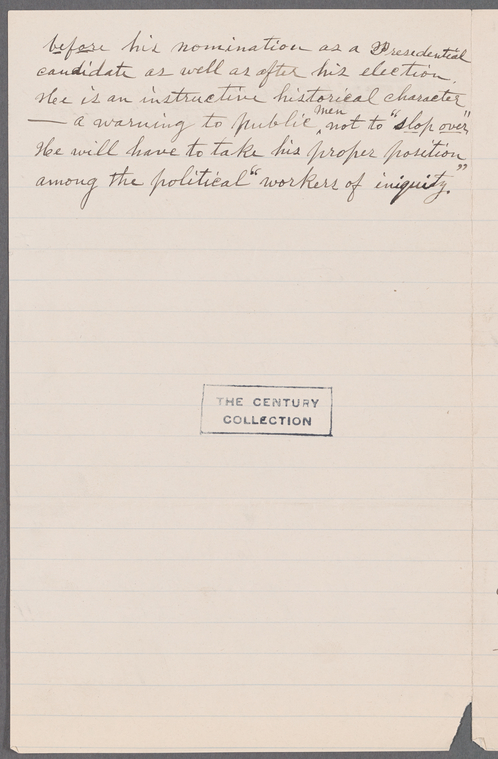 before his nomination as a Presidential
candidate as well as after his election.
He is an instructive historical character
— a warning to public men not to "slop over"
He will have to take his proper position
among the political "workers of iniquity."
THE CENTURY
COLLECTION